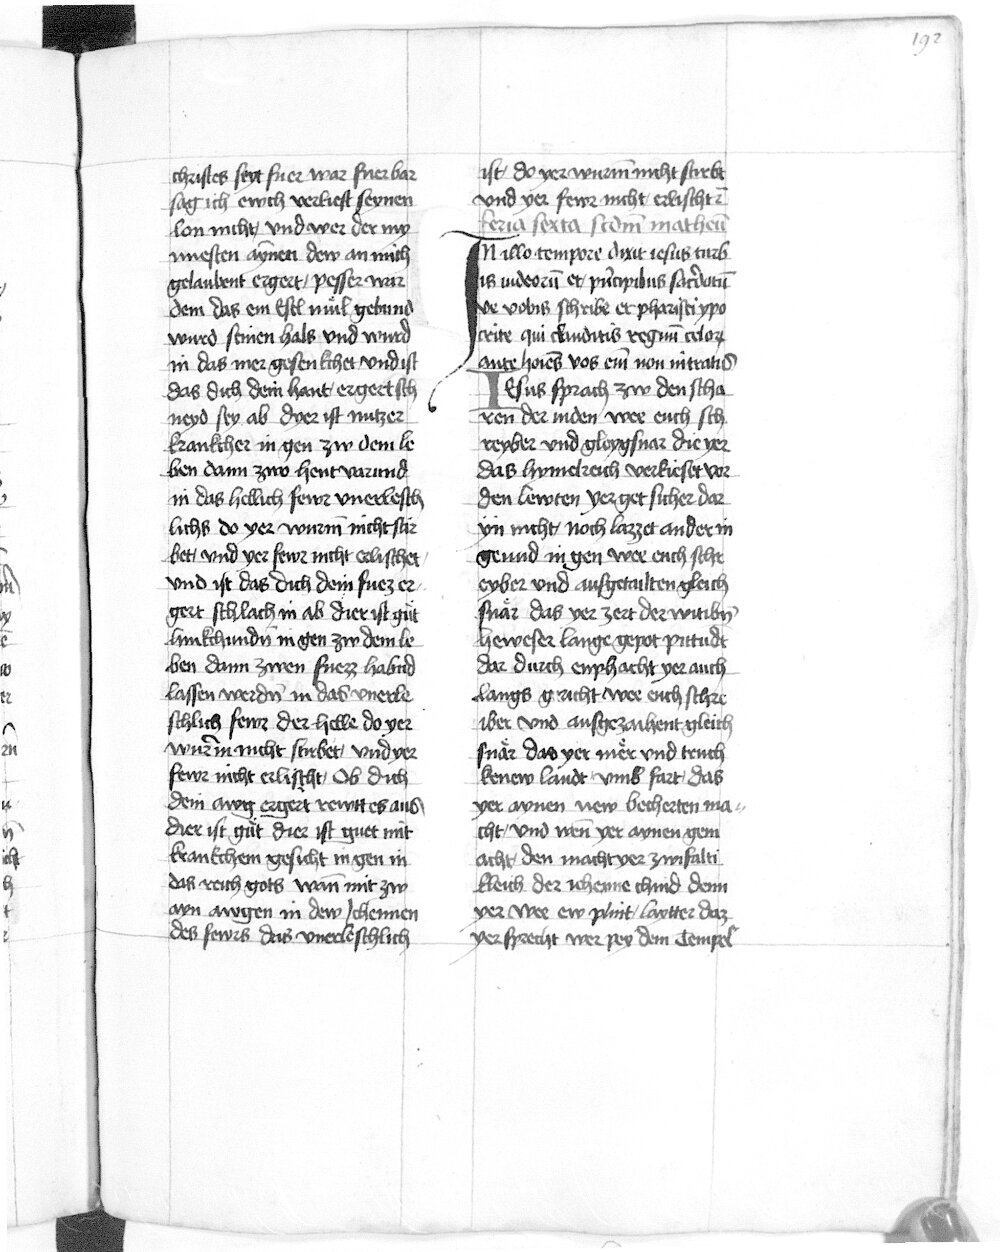 192
christes seyt fuer war fuerbar
sag ich ewch verliest seynen
lon nicht / vnd wer der my
nnesten aynen dew an mich
gelaubent ergert / pesser war
dem das ein Esel mül gebund
wurd seinen hals vnd wurd
in das mer gesenkchet vnd ist
das dich dein hant / ergert sch
neyd sey ab dyer ist nutzer
krankcher in gen zw dem le
ben dann zwo hent varund
in das hellich fewr vnerlesch
lichs do yer wurm̄ nicht stir
bet / vnd yer fewr nicht erlischet /
vnd ist das dich dein fuez er
gert schlach in ab dier ist güt
linkchundn̄ in gen zw dem le
ben dann zwen fuezz habnd
lassen werdn̄ in das vnerle
schlich fewr der helle do yer
wurm nicht stirbet / vnd yer
fewr nicht erlischt / Ob dich
dein awg ergert rewtt es aus
dier ist güt dier ist guet mit
krankchem gesicht in gen in
das reich gots wan̄ mit zw
ayn awgen in dew Jehennen
des fewrs das vnerleschlich
ist / do yer wurm̄ nicht stirbt
vnd yer fewr nicht / erlischt
feria sexta scdm̄ matheū
In illo tempore dixit iesus turb
is iudeorū et pn̄cipibus sacerdotū
ve vobis schribe et pharisei ypo
crite qui clauditis regnum̄ celorꝝ
ante hoīes vos eni̅ non intratis
IEsus sprach zw den scha
ren der iuden wee euch sch
reyber vnd gleygsnar die yer
das hymelreich verlieset vor
den lewten yer get sicher dar
yn nicht / noch lazzet ander in
geund in gen wee euch schr
eyber vnd ausgetailten gleich
snär das yer zert der witibn̄
heweser lange gepot pittudt
dar durch enphacht yer auch
langs gericht wee euch schre
iber vnd ausgezaihent gleich
snär das yer mër vnd truch
kenew landt vmb fart / das
yer aynen new becherten ma
cht / vnd wen̄ yer aynen gem
acht / den macht yer zwifalti
kleich der iehenne chind denn
yer wee ew plint / laytter daz
yer sprecht wer pey dem Tempel